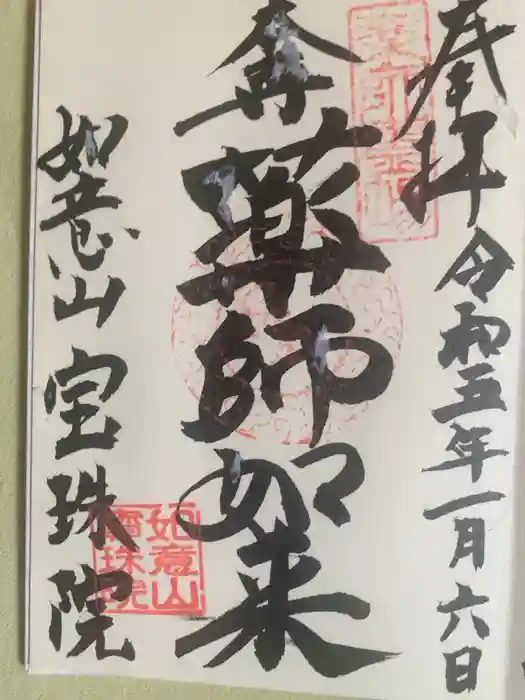 奉拝 令和五年一月六日
薬師如来
如意山宝珠院
如意山
寶珠院